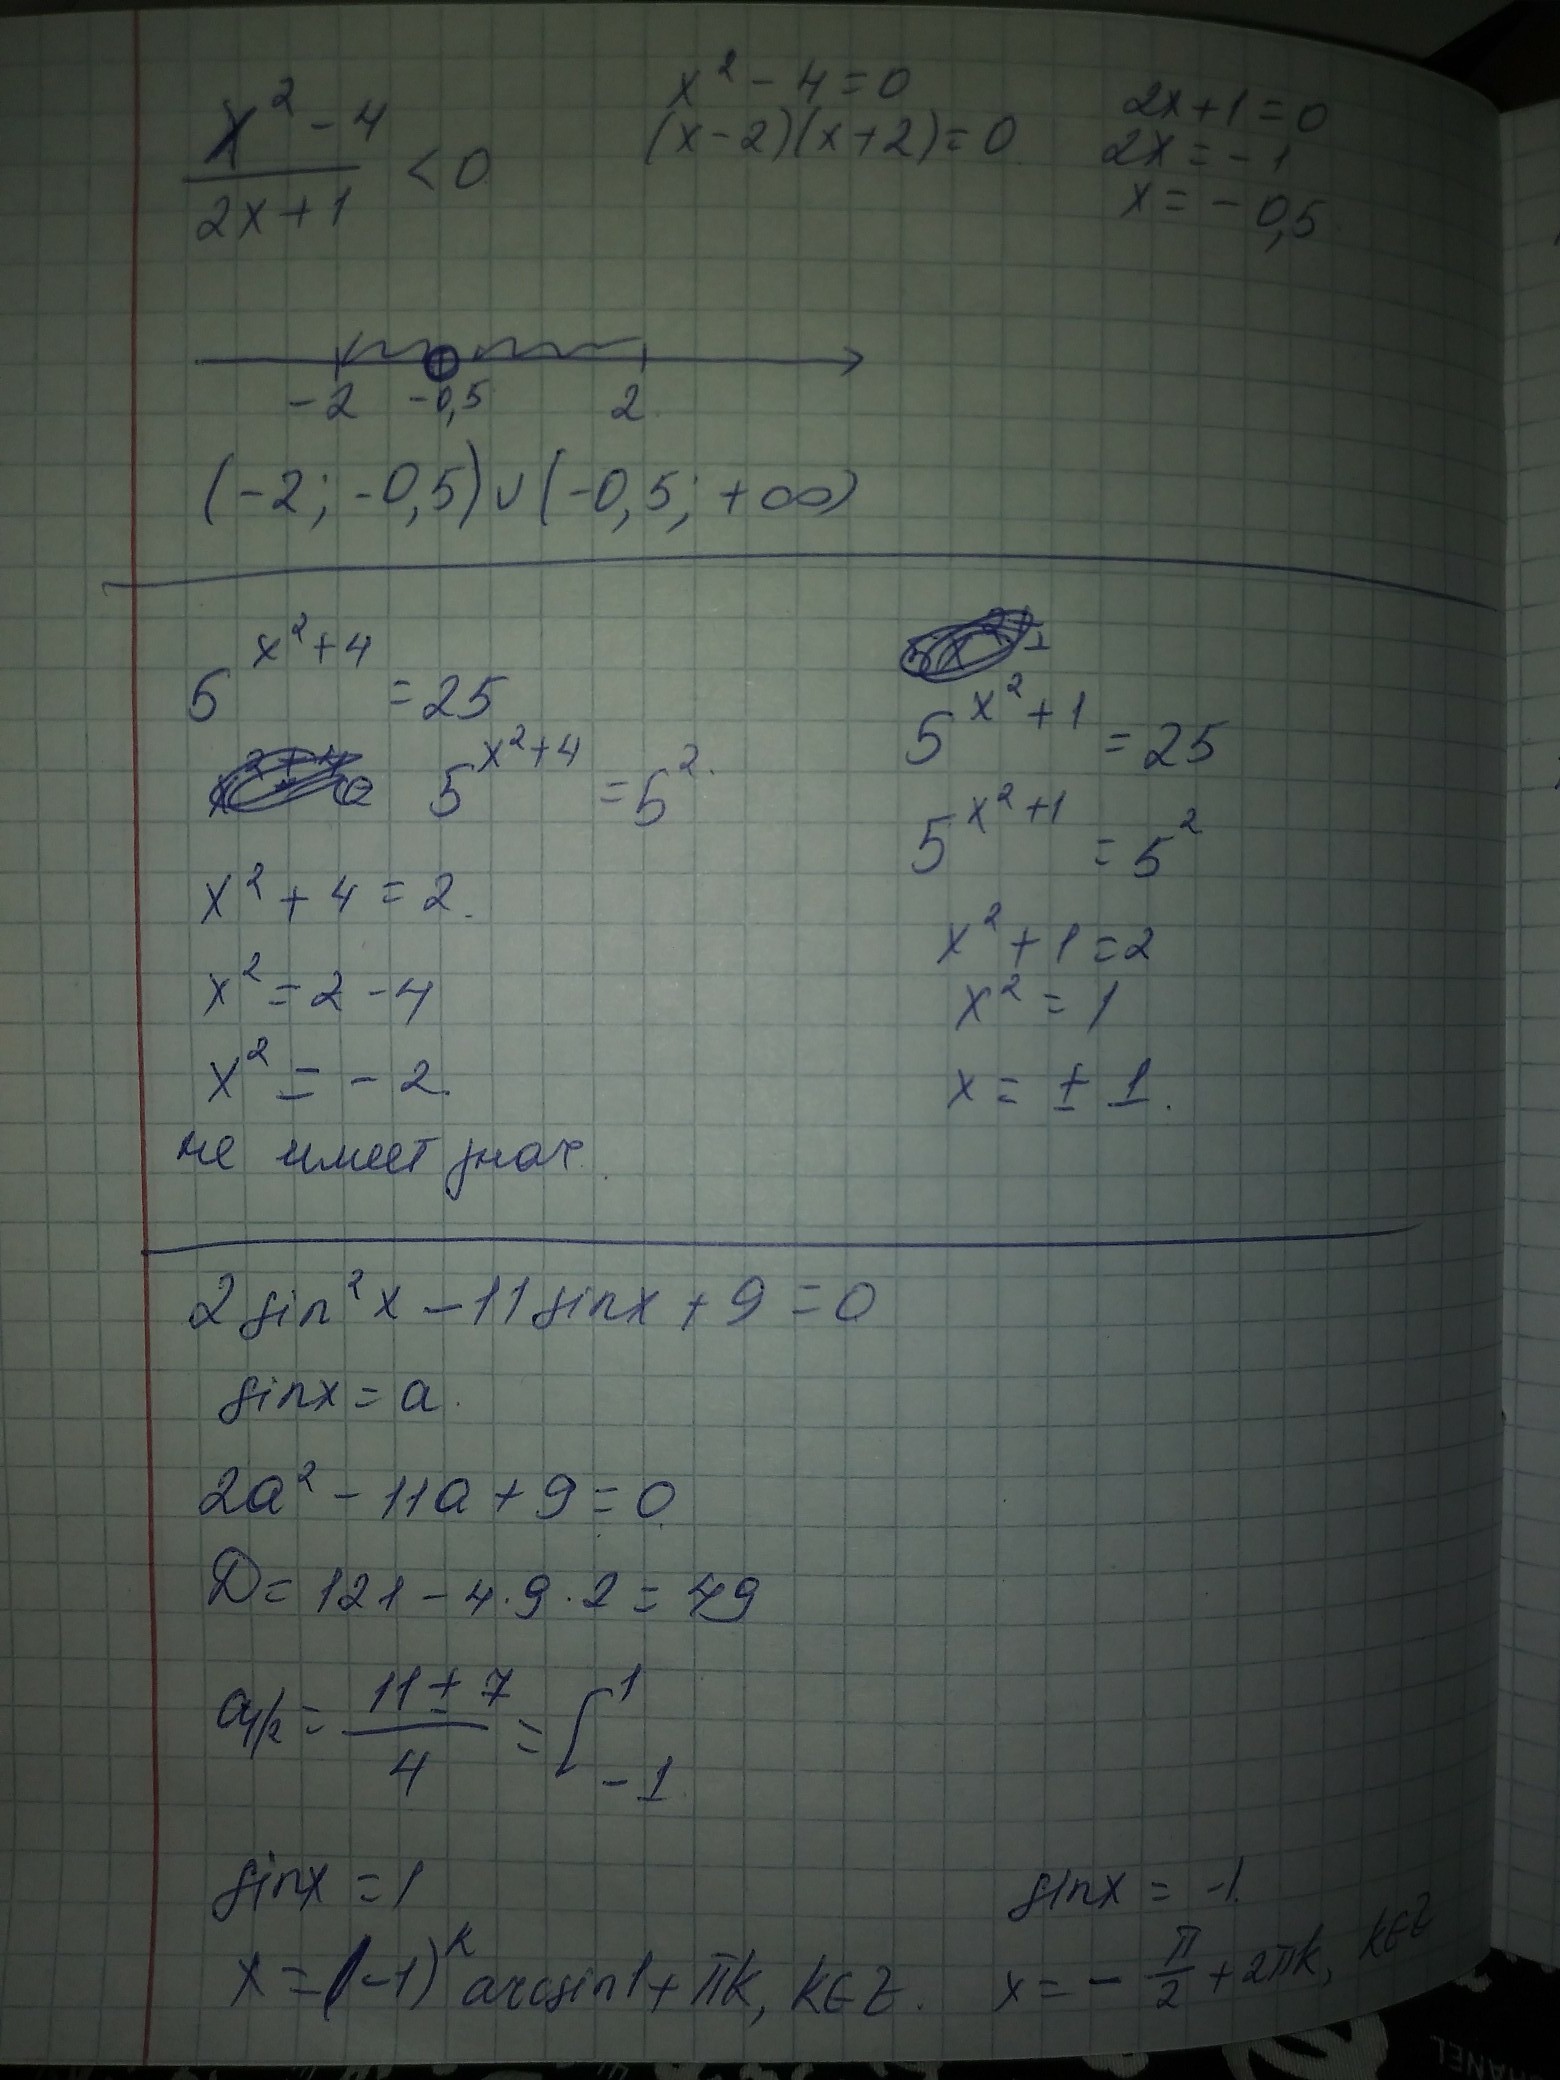 x² - 4 / 2x + 1 < 0
x² - 4 = 0
(x - 2)(x + 2) = 0
2x + 1 = 0
2x = - 1
x = - 0,5
-2 -0,5 2
(-2; -0,5) ∪ (-0,5; +∞)
5^(x² + 4) = 25
5^(x² + 4) = 5².
x² + 4 = 2.
x² = 2 - 4
x² = - 2.
не имеет знач.
5^(x² + 1) = 25
5^(x² + 1) = 5²
x² + 1 = 2
x² = 1
x = ± 1.
2 sin² x - 11 sin x + 9 = 0
sin x = a.
2a² - 11a + 9 = 0
D = 121 - 4 · 9 · 2 = 49
a1/2 = 11 ± 7 / 4 = [ 1
-1
sin x = 1
x = (-1)^k arcsin 1 + πk, k ∈ Z.
sin x = -1.
x = - π/2 + 2πk, k ∈ Z
CHANEL